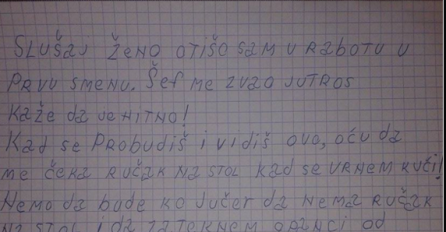 SLUŠAJ ŽENO OTIŠO SAM U RABOTU U
PRVU SMENU. ŠEF ME ZVAO JUTROS
KAŽE DA JE HITNO!
KAD SE PROBUDIŠ I VIDIŠ OVO, OĆU DA
ME ČEKA RUČAK NA STOL KAD SE VRNEM KUĆI!
NEMO DA BUDE KO JUČER DA NEMA RUČAK
NA STOL I DA ZATEKNEM OD